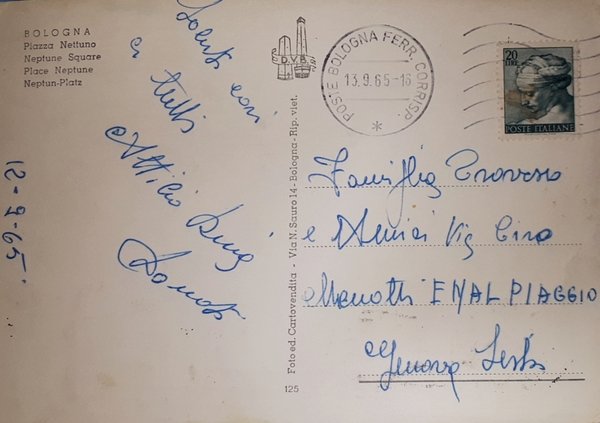 BOLOGNA
Piazza Nettuno
Neptune Square
Place Neptune
Neptun-Platz
12-9-65
Saluti cari
a tutti
Attilio
D.V.B.
Foto ed. Cartovendita - Via N. Sauro 14 - Bologna - Rip. viet.
125
POSTE BOLOGNA FERR. CORRISP.
13.9.65-16
20
LIRE
POSTE ITALIANE
Famiglia Traverso
e Amici Via Ciro
Menotti ENAL PIAGGIO
Genova Sestri